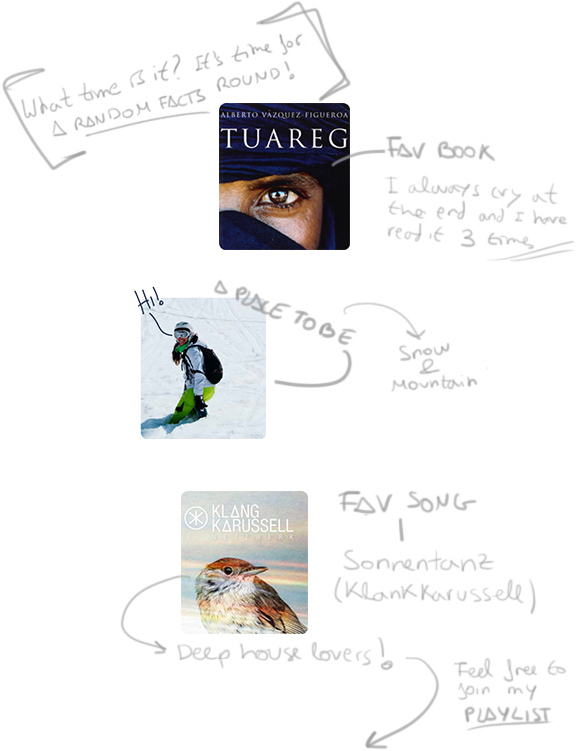 What time is it? It's time for
A RANDOM FACTS ROUND!
ALBERTO VÁZQUEZ-FIGUEROA
TUAREG
FAV BOOK
I always cry at
the end and I have
read it 3 times
Hi!
A PLACE TO BE
Snow
&
Mountain
KLANG
KARUSSELL
NETZWERK
FAV SONG
Sonnentanz
(KlankKarussell)
Deep house lovers!
Feel free to
join my
PLAYLIST